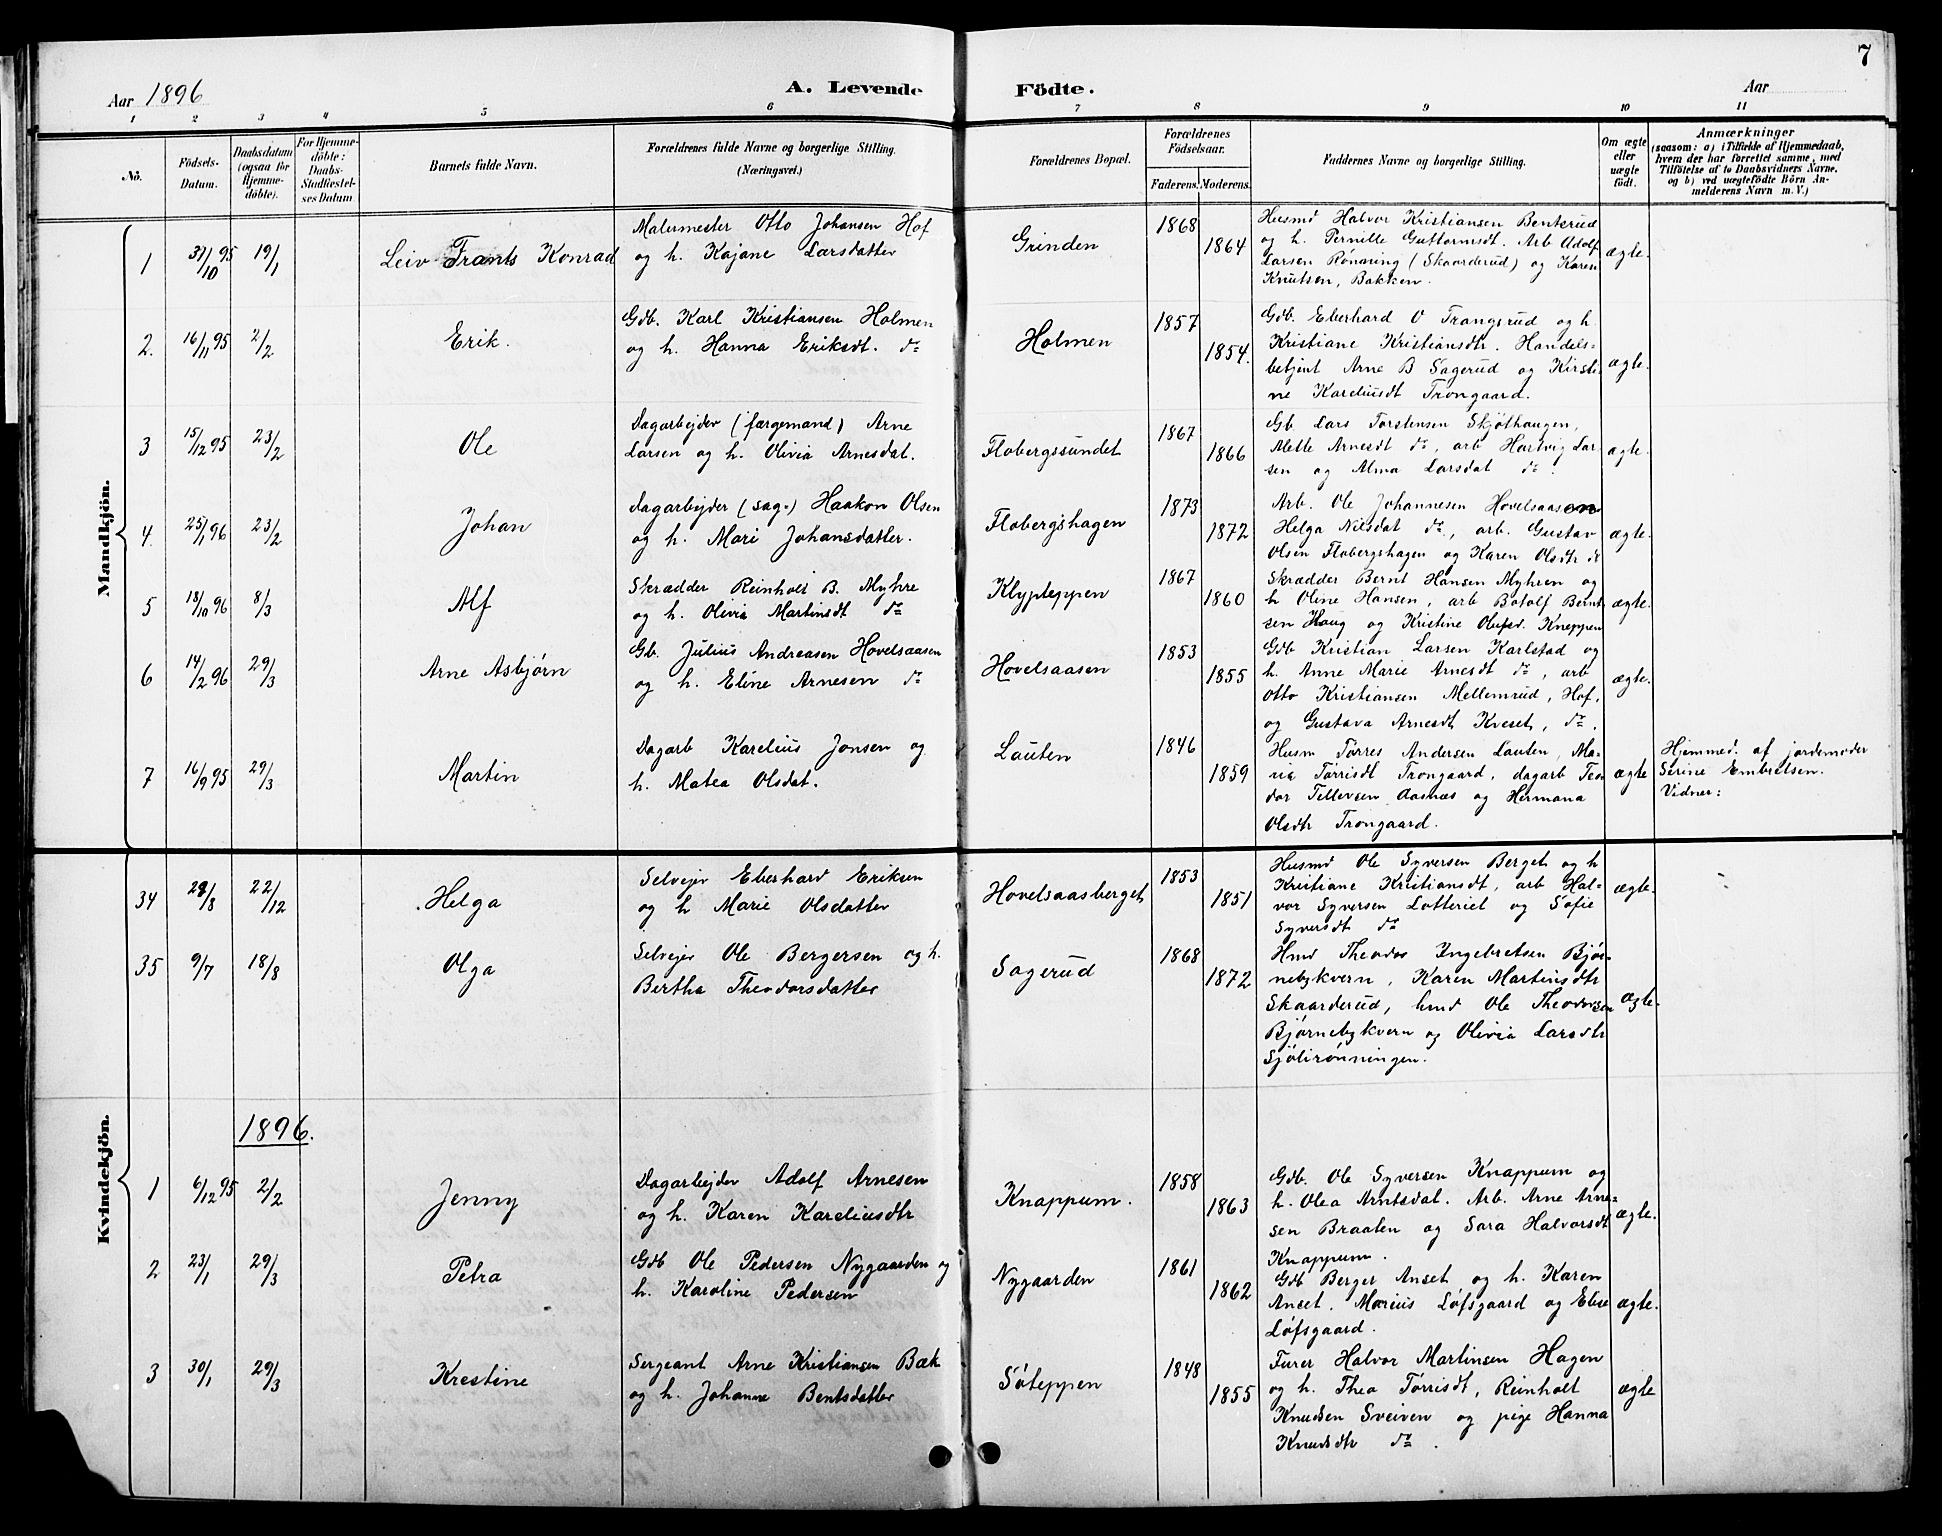 7
Aar 1896
A. Levende Födte.
Aar
1 2 3 4 5 6 7 8 9 10 11
Nö.
Födsels-Datum.
Daabsdatum (ogsaa for Hjemme-döbte).
For Hjemme-döbte: Daabs-Stadfæstel-ses Datum
Barnets fulde Navn.
Forældrenes fulde Navne og borgerlige Stilling. (Næringsvei.)
Forældrenes Bopæl.
Forældrenes Födselsaar.
Faderens. Moderens.
Faddernes Navne og borgerlige Stilling.
Om ægte eller uægte födt.
Anmærkninger
(saasom: a) i Tilfælde af Hjemmedaab, hvem der har forrettet samme, med Tilföielse af to Daabsvidners Navne, og b) ved uægtefödte Börn An-melderens Navn m. V.)
Mandkjön.
1 31/10 95 19/1 Leiv Frants Konrad
Malermester Otto Johansen Hof
og h. Kajane Larsdatter
Grinden 1868 1864
Husmd Halvor Kristiansen Benterud
og h. Pernille Guttormsdt. Arb Adolf
Larsen Rönning (Skaarderud) og Karen
Knutsen, Bakken.
ægte.
2. 16/11 95 2/2 Erik.
Gdb. Karl Kristiansen Holmen
og h. Hanna Eriksdt. do
Holmen 1857 1854.
Gdb. Eberhard O Trangsrud og h.
Kristiane Kristiansdtr. Handels-
betjent Arne B Sagerud og Kirsti-
ne Kareliusdt Trongaard.
ægte.
3 15/12 95 23/2 Ole
Dagarbejder (færgemand) Arne
Larsen og h. Olivia Arnesdat.
Flobergssundet 1867 1866
Gb. Lars Torstensen Skjöthaugen,
Mette Arnesdt do, arb Hartvig Lar-
sen og Alma Larsdat do.
ægte.
4. 25/1 96 23/2 Johan
Dagarbejder (sag-) Haakon Olsen
og h. Mari Johansdatter.
Flobergshagen 1873 1872
Arb. Ole Johannesen Hovelsaasen
Helga Nilsdat do, arb. Gustav
Olsen Flobergshagen og Karen Olsdtr d
ægte.
5 18/10 96 8/3 Alf
Skrædder Reinholt B. Myhre
og h. Olivia Martinsdt do
Klypteppen 1867 1860
Skrædder Bernt Hansen Myhren og
h Oline Hansen, arb Botolf Bernt-
sen Haug og Kristine Olufsd. Kneppen
ægte.
6 14/2 96 29/3 Arne Asbjørn
Gb. Julius Andreasen Hovelsaasen
og h. Eline Arnesen do
Hovelsaasen 1853 1855
Gdb Kristian Larsen Karlstad og
h. Anne Marie Arnesdt do, arb
Otto Kristiansen Mellemrud, Hof,
og Gustava Arnesdt Kveset, do.
ægte.
7 16/9 95 29/3 Martin
Dagarb Karelius Jonsen og
h. Matea Olsdat.
Lauten 1846 1859
Husm Tørres Andersen Lauten, Ma-
ria Tørrisdt Trongaard, dagarb Teo-
dor Tellevsen Aasnæs og Hermana
Olsdtr Trongaard.
ægte
Hjemmed. af jordemoder
Serine Embretsen.
Vidner:
Kvindekjön.
34 28/8 22/12 Helga
Selvejer Eberhard Eriksen
og h Marie Olsdatter
Hovelsaasberget 1853 1851
Husmd Ole Syversen Berget og h
Kristiane Kristiansdt, arb Hal-
vor Syversen Lotteriet og Sofie
Syversdt do
ægte.
35 9/7 18/8 Olga
Selvejer Ole Bergersen og h.
Bertha Theodorsdatter
Sagerud 1868 1872
Hmd Theodor Ingebretsen Bjør-
nebykvern, Karen Martinsdtr
Skaarderud, hmd Ole Theodorsen
Bjørnebykvern og Olivia Larsdtr
Sjölirönningen.
ægte.
1896.
1 6/12 95 2/2 Jenny
Dagarbejder Adolf Arnesen
og h. Karen Kareliusdtr
Knappum. 1858 1863
Gdb. Ole Syversen Knappum og
h. Olea Arntsdat. Arb. Arne Arne-
sen Braaten og Sara Halvorsdt
Knappum.
ægte.
2 23/1 29/3 Petra
Gdb Ole Pedersen Nygaarden og
h. Karoline Pedersen
Nygaarden 1861 1862
Gdb Berger Anset og h. Karen
Anset. Marius Löfsgaard og Elise
Löfsgaard.
ægte.
3 30/1 29/3 Krestine
Sergeant Arne Kristiansen Bæk
og h. Johanne Bentsdatter
Söteppen 1848 1855
Furer Halvor Martinsen Hagen
og h. Thea Tørrisdt, Reinholt
Knudsen Sveiven og pige Hanna
Knudsdtr do.
ægte